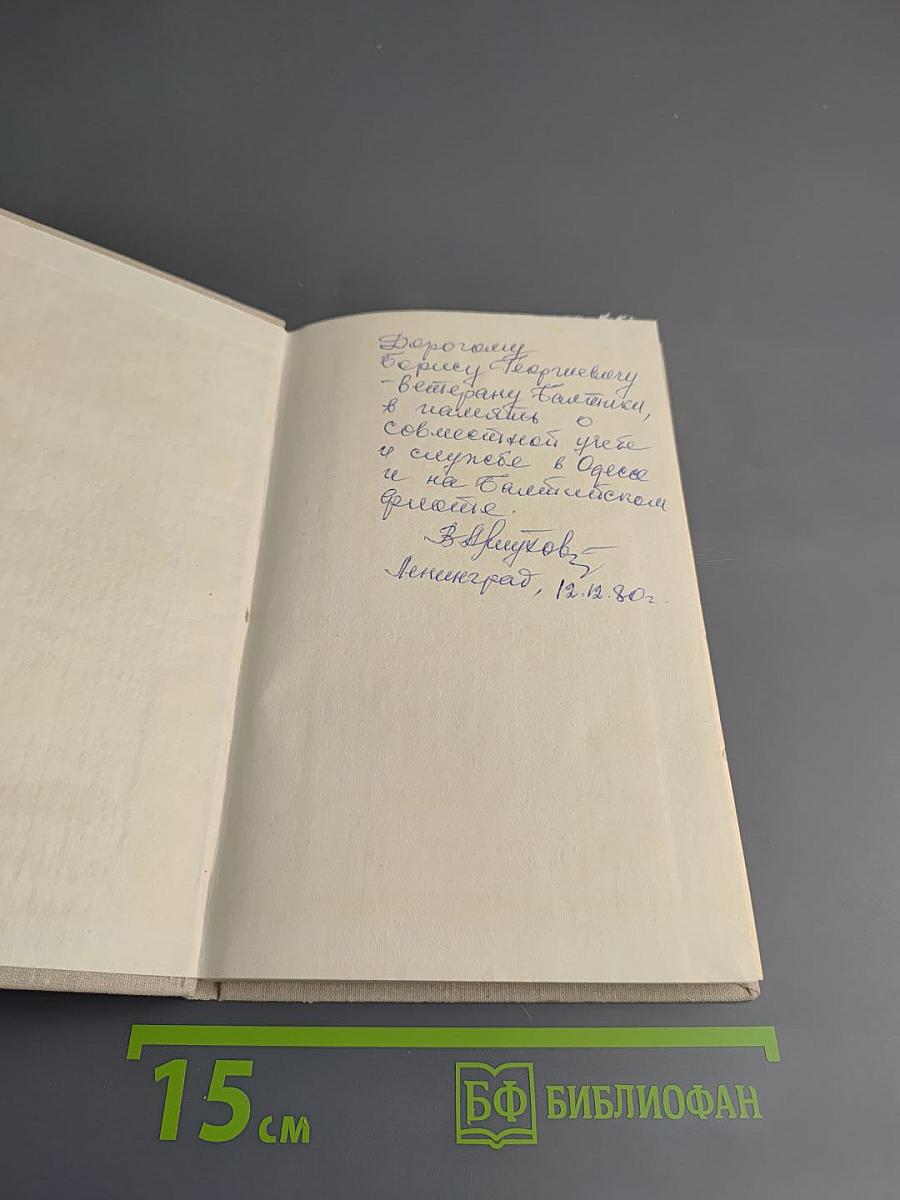 Дорогому
Борису Георгиевичу
- ветерану Балтики,
в память о
совместной учебе
и службе в Одессе
и на Балтийском
флоте.
Ленинград, 12.12.80г.
15 см
БФ БИБЛИОФАН